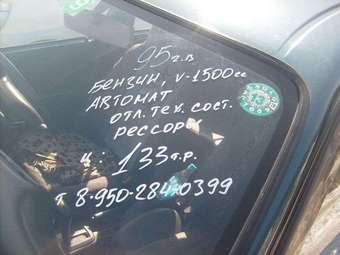 95 г.в
БЕНЗИН, V-1500 cc
АВТОМАТ
ОТЛ. ТЕХ. СОСТ.
РЕССОРЫ
Ц. 133 т.р.
т 8-950-284-0399